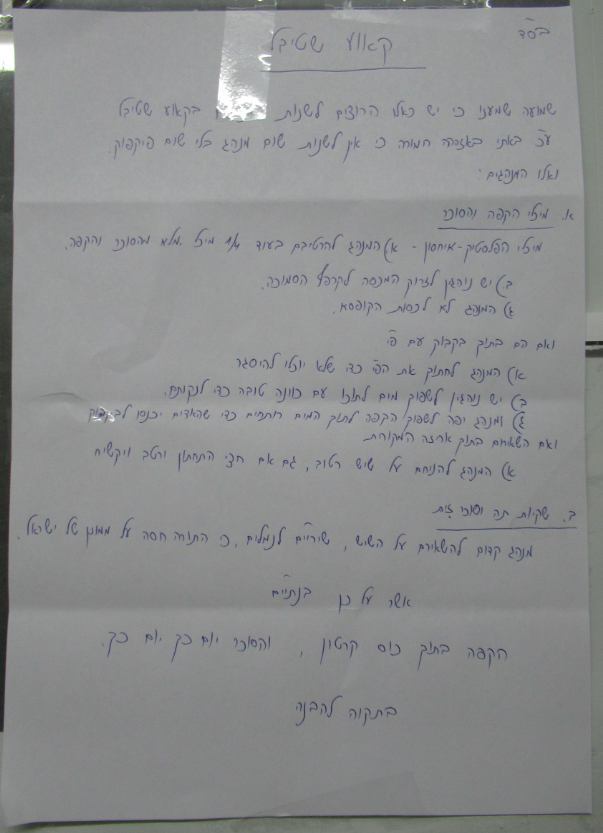 בס"ד
קאווע שטיבל
שמועה שמענו כי יש כאלו הרוצים לשנות בקאווע שטיבל
ע"כ באתי באזהרה חמורה כי אין לשנות שום מנהג בלי שום פיקפוק.
ואלו המנהגים:
א. מיכלי הקפה והסוכר
מיכלי הפלסטיק-איחסון - א) המנהג להרטיבם בעוד מיכל מלא מהסוכר והקפה.
ב) יש נוהגין לזרוק המכסה לקרפף הסמוכה.
ג) המנהג לא לכסות הקופסא.
ואם הם בתוך בקבוק עם פי'
א) המנהג לחתוך את הפי' כדי שלא יוכלו להיסגר
ב) יש נוהגין לשפוך מים לתוכו עם כוונה טובה כדי לנקותם.
ג) ומנהג יפה לשפוך הקפה לתוך המים רותחים כדי שהאדים יכנסו לבקבוק
ואם השארתם בתוך אריזה המקורית
א) המנהג להניחם על שיש רטוב, גם אם חצי התחתון ירטב ויקשיח
ב. שקיות תה וסוכרזית
מנהג קדום להשאירם על השיש, שיריים לנמלים, כי התורה חסה על ממונן של ישראל.
אשר על כן בנתיים
הקפה בתוך כוס קרטון, והסוכר יום כך יום כך.
בתקוה להבנה